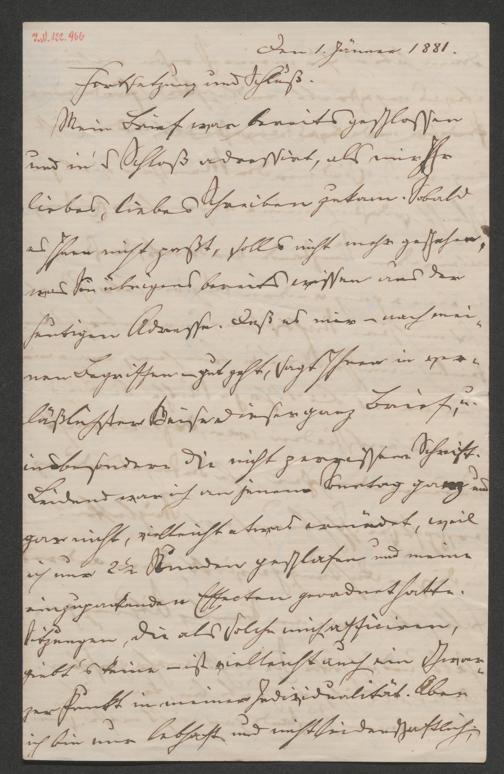 I.N. 122.966
Den 1. Jänner 1881.
Fortsetzung und Schluß.
Mein Brief war bereits geschlossen
und in's Schloß adressirt, als mir Ihr
liebes, liebes Schreiben zukam. Sobald
es Ihnen nicht paßt, solls nicht mehr geschehen,
was Sie übrigens bereits wissen aus der
heutigen Adresse. Daß es mir – nach mei-
nen Begriffen – gut geht, sagt Ihnen in ver-
läßlichster Weise dieser ganze Brief, u.
insbesondere die nicht zerrissene Schrift.
Leidend war ich an jenem Sonntag ganz und
gar nicht, vielleicht etwas ermüdet, weil
ich nur 2½ Stunden geschlafen und meine
einzupackenden Effecten geordnet hatte.
die als solche mich afficiren,
giebt's keine – ist vielleicht auch ein schwar-
zer Punkt in meiner Individualität. Aber
ich bin nur lebhaft und nicht leidenschaftlich